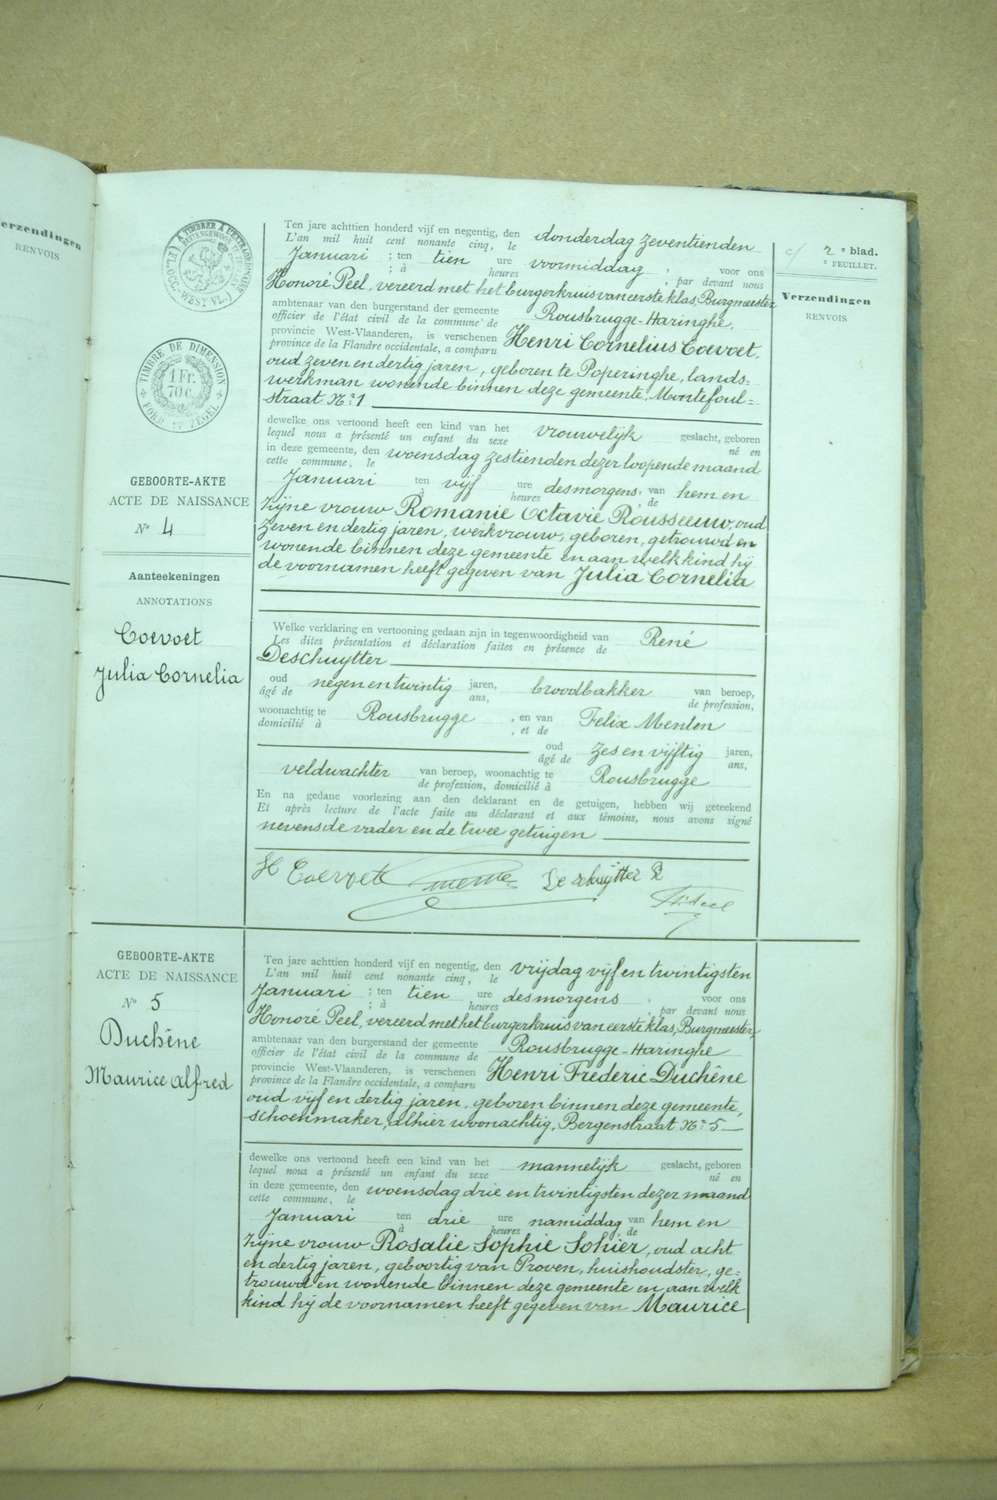 erzendingen
RENVOIS
A TIMBRER A L'EXTRAORDINAIRE
WEST-VL.
TIMBRE DE DIMENSION
1 Fr.
70 c.
FORMAAT ZEGEL
2e blad.
e FEUILLET.
Verzendingen
RENVOIS
GEBOORTE-AKTE
ACTE DE NAISSANCE
No 4
Aanteekeningen
ANNOTATIONS
Coevoet
Julia Cornelia
Ten jare achttien honderd vijf en negentig, den donderdag zeventienden
L'an mil huit cent nonante cinq, le
Januari ; ten tien ure voormiddag , voor ons
; à heures , par devant nous
Honoré Peel, vereerd met het burgerkruis van eerste klas, Burgmeester
ambtenaar van den burgerstand der gemeente Rousbrugge-Haringhe,
officier de l'état civil de la commune de
provincie West-Vlaanderen, is verschenen Henri Cornelius Coevoet,
province de la Flandre occidentale, a comparu
oud zeven en dertig jaren, geboren te Poperinghe, lands=
werkman wonende binnen deze gemeente, Montefoul=
straat No 1
dewelke ons vertoond heeft een kind van het vrouwelyk geslacht, geboren
lequel nous a présenté un enfant du sexe né en
in deze gemeente, den woensdag zestienden dezer loopende maand
cette commune, le
Januari ten vyf ure desmorgens, van hem en
à heures de
zyne vrouw Romanie Octavie Rousseeuw, oud
zeven en dertig jaren, werkvrouw, geboren, getrouwd en
wonende binnen deze gemeente en aan welk kind hy
de voornamen heeft gegeven van Julia Cornelia
Welke verklaring en vertooning gedaan zijn in tegenwoordigheid van René
Les dites présentation et déclaration faites en présence de
Deschuytter
oud negen en twintig jaren, broodbakker van beroep,
âgé de ans, de profession,
woonachtig te Rousbrugge , en van Felix Menten
domicilié à , et de
oud zes en vyftig jaren,
âgé de ans,
veldwachter van beroep, woonachtig te Rousbrugge
de profession, domicilié à
En na gedane voorlezing aan den deklarant en de getuigen, hebben wij geteekend
Et après lecture de l'acte faite au déclarant et aux témoins, nous avons signé
nevens de vader en de twee getuigen
H Coevoet Deschuytter R
GEBOORTE-AKTE
ACTE DE NAISSANCE
No 5
Duchêne
Maurice Alfred
Ten jare achttien honderd vijf en negentig, den vrijdag vijf en twintigsten
L'an mil huit cent nonante cinq, le
Januari ; ten tien ure desmorgens , voor ons
; à heures par devant nous
Honoré Peel, vereerd met het burgerkruis van eerste klas, Burgmeester,
ambtenaar van den burgerstand der gemeente Rousbrugge-Haringhe
officier de l'état civil de la commune de
provincie West-Vlaanderen, is verschenen Henri Frederic Duchêne
province de la Flandre occidentale, a comparu
oud vijf en dertig jaren, geboren binnen deze gemeente,
schoenmaker, alhier woonachtig, Bergenstraat No 5
dewelke ons vertoond heeft een kind van het mannelijk geslacht, geboren
lequel nous a présenté un enfant du sexe né en
in deze gemeente, den woensdag drie en twintigsten dezer maand
cette commune, le
Januari ten drie ure namiddag van hem en
à heures de
zijne vrouw Rosalie Sophie Sohier, oud acht
en dertig jaren, geboortig van Proven, huishoudster, ge=
trouwd en wonende binnen deze gemeente en aan welk
kind hij de voornamen heeft gegeven van Maurice